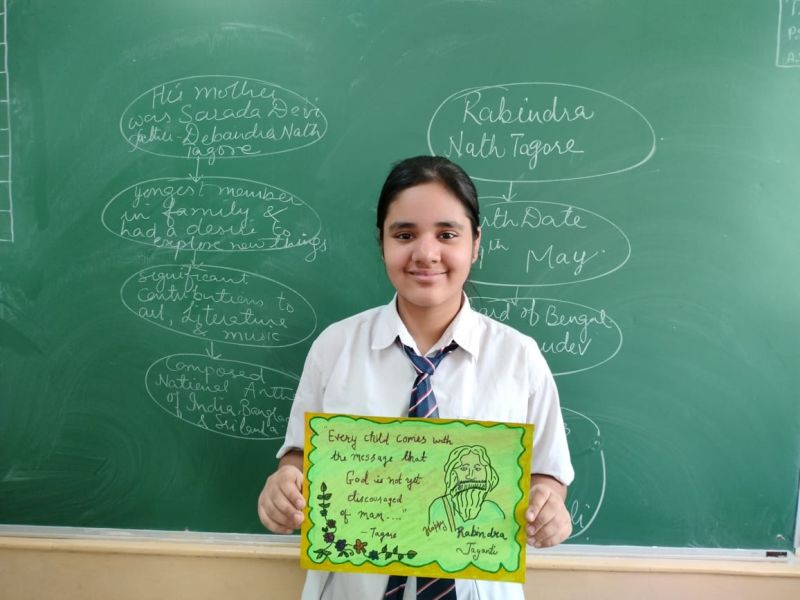 His mother
was Sarada Devi
father - Debandra Nath
Tagore
yongest member
in family &
had a desire to
explore new things
Significant
Contributions to
art, Literature
& music
Composed
National Anth
of India, Bangla
& Srilanka
Rabindra
Nath Tagore
rth Date
th May.
ard of Bengal
udev
"Every child comes with
the message that
God is not yet
discouraged
of man...."
- Tagore
Happy Rabindra
Jayanti